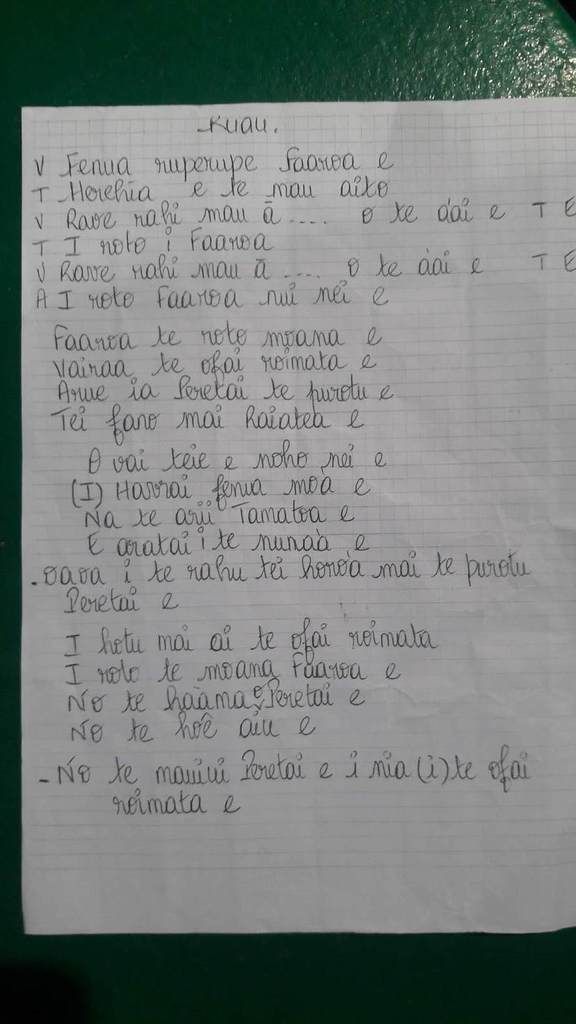 Ruau.
V Fenua ruperupe Faaroa e
T Herehia e te mau aito
V Rave rahi mau ā .... o te àài e T E
T I roto i Faaroa
V Rave rahi mau ā .... o te àài e T E
A I roto Faaroa nui nei e
Faaroa te roto moana e
Vairaa te ofai roimata e
Arue ia Peretai te purotu e
Tei fano mai Raiatea e
O vai teie e noho nei e
(I) Havai fenua moà e
Na te arii Tamatoa e
E aratai i te nunaà e
- oaoa i te rahu tei horoà mai te purotu
Peretai e
I hotu mai ai te ofai roimata
I roto te moana Faaroa e
No te haàma e Peretai e
No te hoê aiu e
- No te mauiui Peretai e i nia (i) te ofai
roimata e